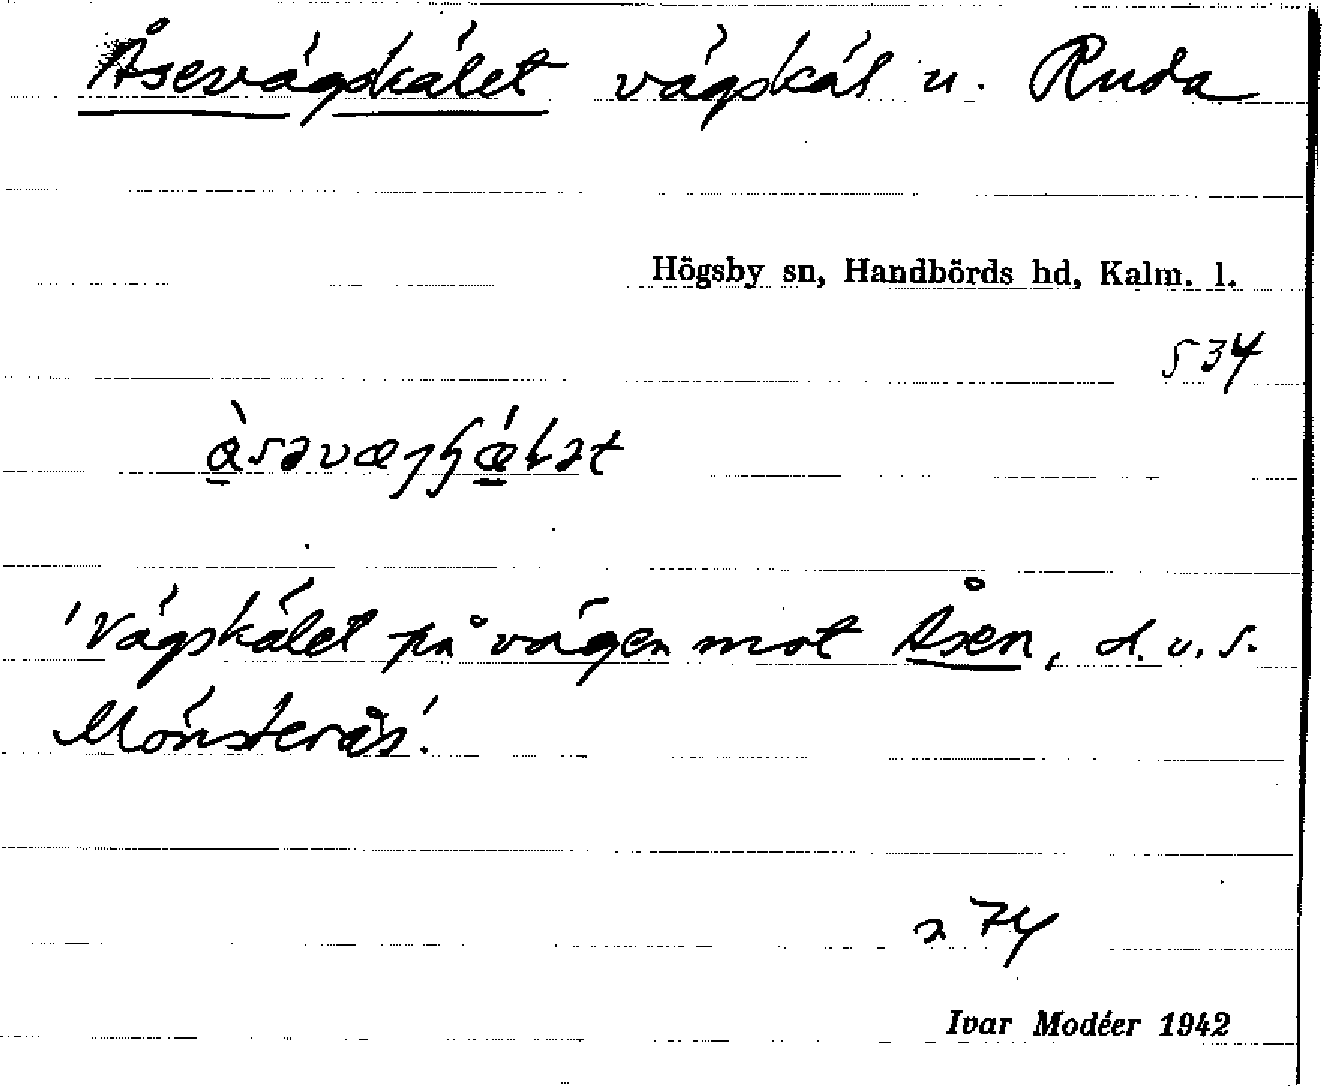 Åsevägskälet vägskäl u. Ruda
Högsby sn, Handbörds hd, Kalm. l.
534
'Vägskälet på vägen mot Åsen, d.v.s.
Mönsterås'.
274
Ivar Modéer 1942